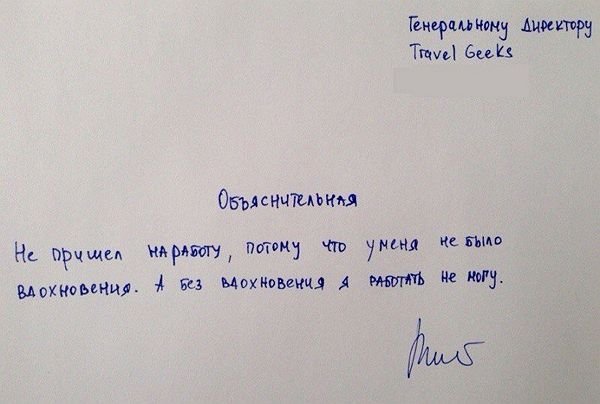 Генеральному директору
Travel Geeks
Объяснительная
Не пришел на работу, потому что у меня не было
вдохновения. А без вдохновения я работать не могу.